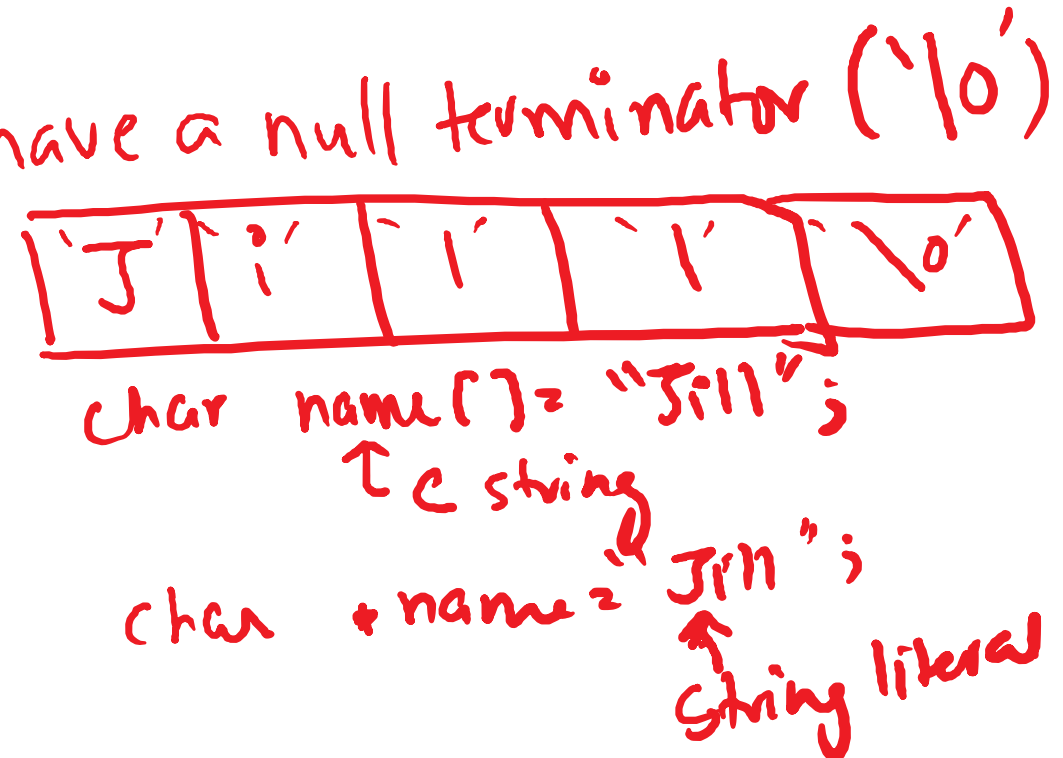 have a null terminator ('\0')
'J' 'i' 'l' 'l' '\0'
char name[] = "Jill";
↑ C string
char *name = "Jill";
↑
string literal